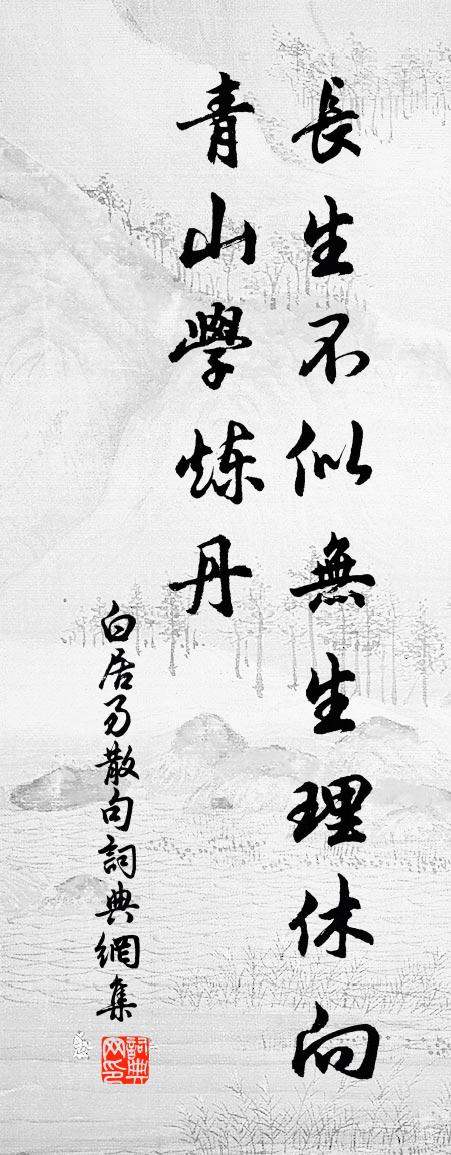 長生不似無生理休向
青山學炼丹
白居易散句詞典網集
詞典
网印